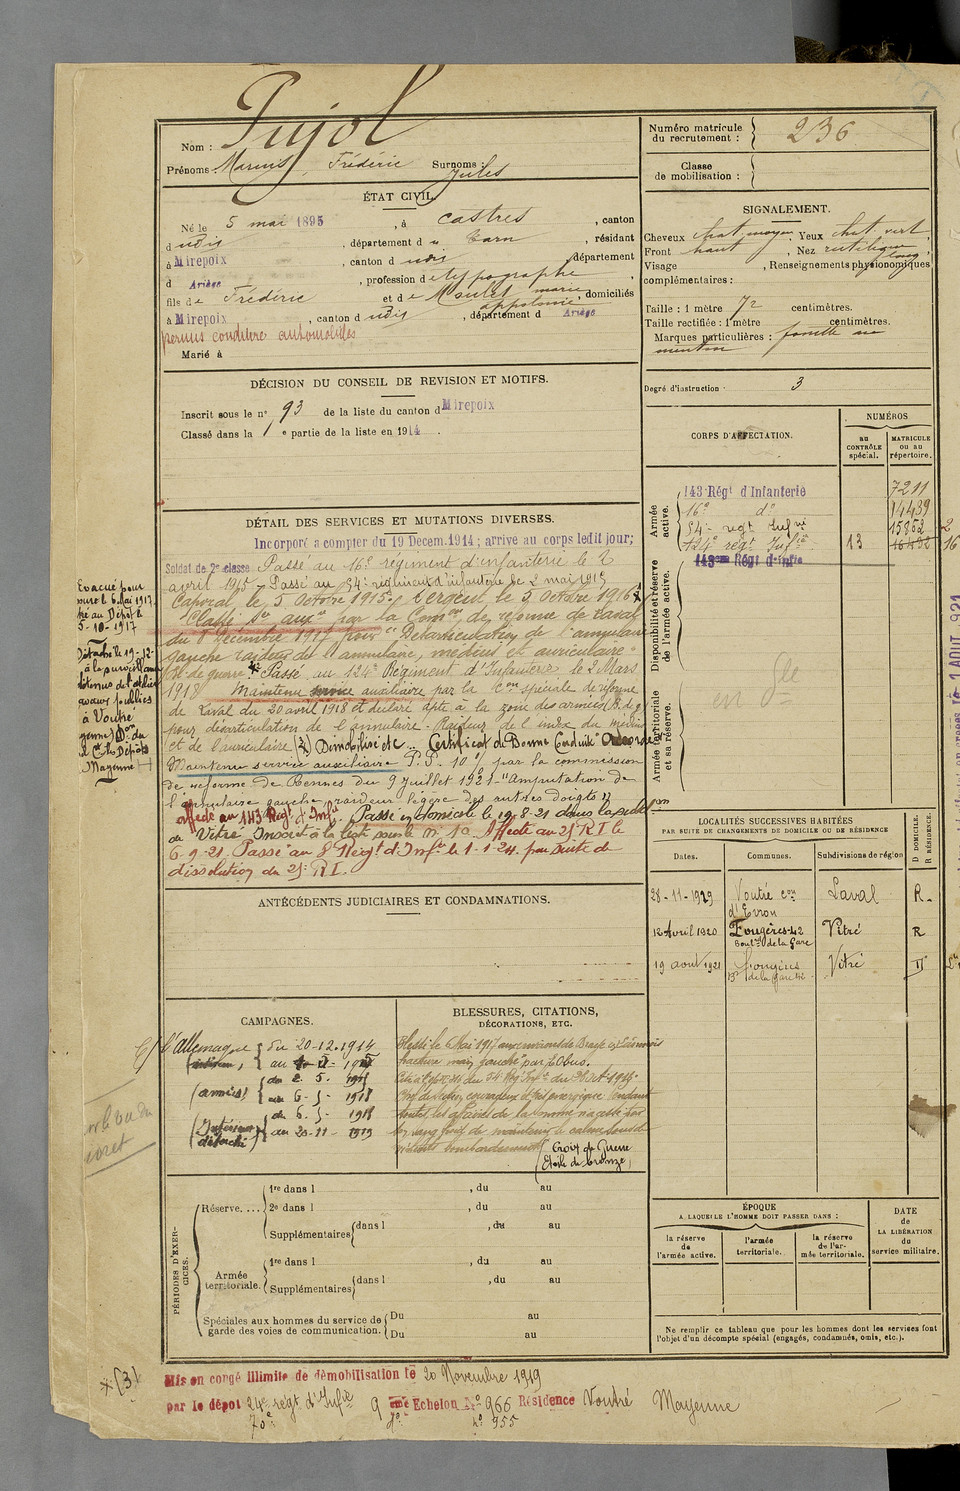 Nom : Pujol
Prénoms : Marius, Frédéric Surnoms : Jules
Numéro matricule du recrutement : 236
Classe de mobilisation :
ÉTAT CIVIL.
Né le 5 mai 1895, à Castres, canton
dudis, département du Tarn, résidant
à Mirepoix, canton dudis, département
d Ariège, profession de typographe,
fils de Frédéric et de Moulet marie appolonie, domiciliés
à Mirepoix, canton dudis, département d Ariège
permis conduire automobiles
Marié à
SIGNALEMENT.
Cheveux chat. moyen, Yeux chat. vert,
Front haut, Nez rectiligne
Visage , Renseignements physionomiques
complémentaires :
Taille : 1 mètre 72 centimètres.
Taille rectifiée : 1 mètre centimètres.
Marques particulières : fossette au
menton
Degré d'instruction : 3
DÉCISION DU CONSEIL DE REVISION ET MOTIFS.
Inscrit sous le n° 93 de la liste du canton d Mirepoix
Classé dans la 1re partie de la liste en 1914.
CORPS D'AFFECTATION.
NUMÉROS
au CONTRÔLE spécial.
MATRICULE ou au répertoire.
Armée active.
143 Régt d'Infanterie 7211
16e d° 14439
54e regt Infrie 15862
124e regt Infie 13 16482
143eme Régt d'Infie
Disponibilité et réserve de l'armée active.
Armée territoriale et sa réserve.
DÉTAIL DES SERVICES ET MUTATIONS DIVERSES.
Incorporé a compter du 19 Decem. 1914 ; arrivé au corps ledit jour ;
Soldat de 2e classe Passé au 16e régiment d'infanterie le 2
avril 1915 - Passé au 54e régiment d'infanterie le 2 mai 1915
Caporal le 5 Octobre 1915. Sergent le 5 Octobre 1916
Classé Sce auxre par la Comon de réforme de Laval
du 8 Décembre 1917 pour "Désarticulation de l'annulaire
gauche raideur de l'annulaire, médius et auriculaire"
Bl. de guerre. Passé au 124e Régiment d'Infanterie le 2 Mars
1918 Maintenu service auxiliaire par la Con spéciale de réforme
de Laval du 20 avril 1918 et déclaré apte à la zone des armées B. d. g
pour désarticulation de l'annulaire - Raideur de l'index du médius
et de l'auriculaire (3) Démobilisé etc.. Certificat de Bonne Conduite "Accordé"
Maintenu service auxiliaire P.P. 10% par la commission
de réforme de Rennes du 9 juillet 1921 - "Amputation de
l'annulaire gauche, raideur légère des autres doigts"
affecté au 143 Régt d'Infie. Passé en domicile le 19-8-21 dans la subdon
de Vitré Inscrit à la liste sous le n° 10 Affecté au 25 RI le
6-9-21. Passé au 8e Régt d'Infie le 1-1-24 par suite de
dissolution du 25 RI.
Evacué pour
blessure le 6 Mai 1917.
Rentré au Dépôt le
5-10-1917
Détaché le 19-12-
à la surveillance
à Voutré
Mayenne
LOCALITÉS SUCCESSIVES HABITÉES
PAR SUITE DE CHANGEMENTS DE DOMICILE OU DE RÉSIDENCE.
Dates. Communes. Subdivisions de région D DOMICILE. R RÉSIDENCE.
28-11-1919 Voutré con d'Evron Laval R
12 Avril 1920 Fougères-42 Boulvd de la Gare Vitré R
19 août 1921 Fougères Bd de la Gare 42 Vitré D
ANTÉCÉDENTS JUDICIAIRES ET CONDAMNATIONS.
CAMPAGNES.
C/ l'Allemagne du 20-12-1914
(armées) du 2. 5.
au 6-5-1918
(Intérieur du 6.5-1918
au 20-11-1919
BLESSURES, CITATIONS, DÉCORATIONS, ETC.
Blessé le 6 Mai 1917 aux environs de Braye en Laonnois
fracture main gauche par éclat d'Obus.
Croix de Guerre
Etoile de bronze
PÉRIODES D'EXERCICES.
Réserve.... 1re dans l , du au
2e dans l , du au
Supplémentaires dans l , du au
Armée territoriale. 1re dans l , du au
Supplémentaires dans l , du au
Spéciales aux hommes du service de garde des voies de communication. Du au
Du au
ÉPOQUE
A LAQUELLE L'HOMME DOIT PASSER DANS :
la réserve de l'armée active.
l'armée territoriale.
la réserve de l'armée territoriale.
DATE de LA LIBÉRATION du service militaire.
Ne remplir ce tableau que pour les hommes dont les services font
l'objet d'un décompte spécial (engagés, condamnés, omis, etc.).
(3) Mis en congé illimité de démobilisation le 20 Novembre 1919
par le dépot 24e régt d'Infie 9 eme Echelon N° 966 Résidence Voutré Mayenne
70e d° n° 955